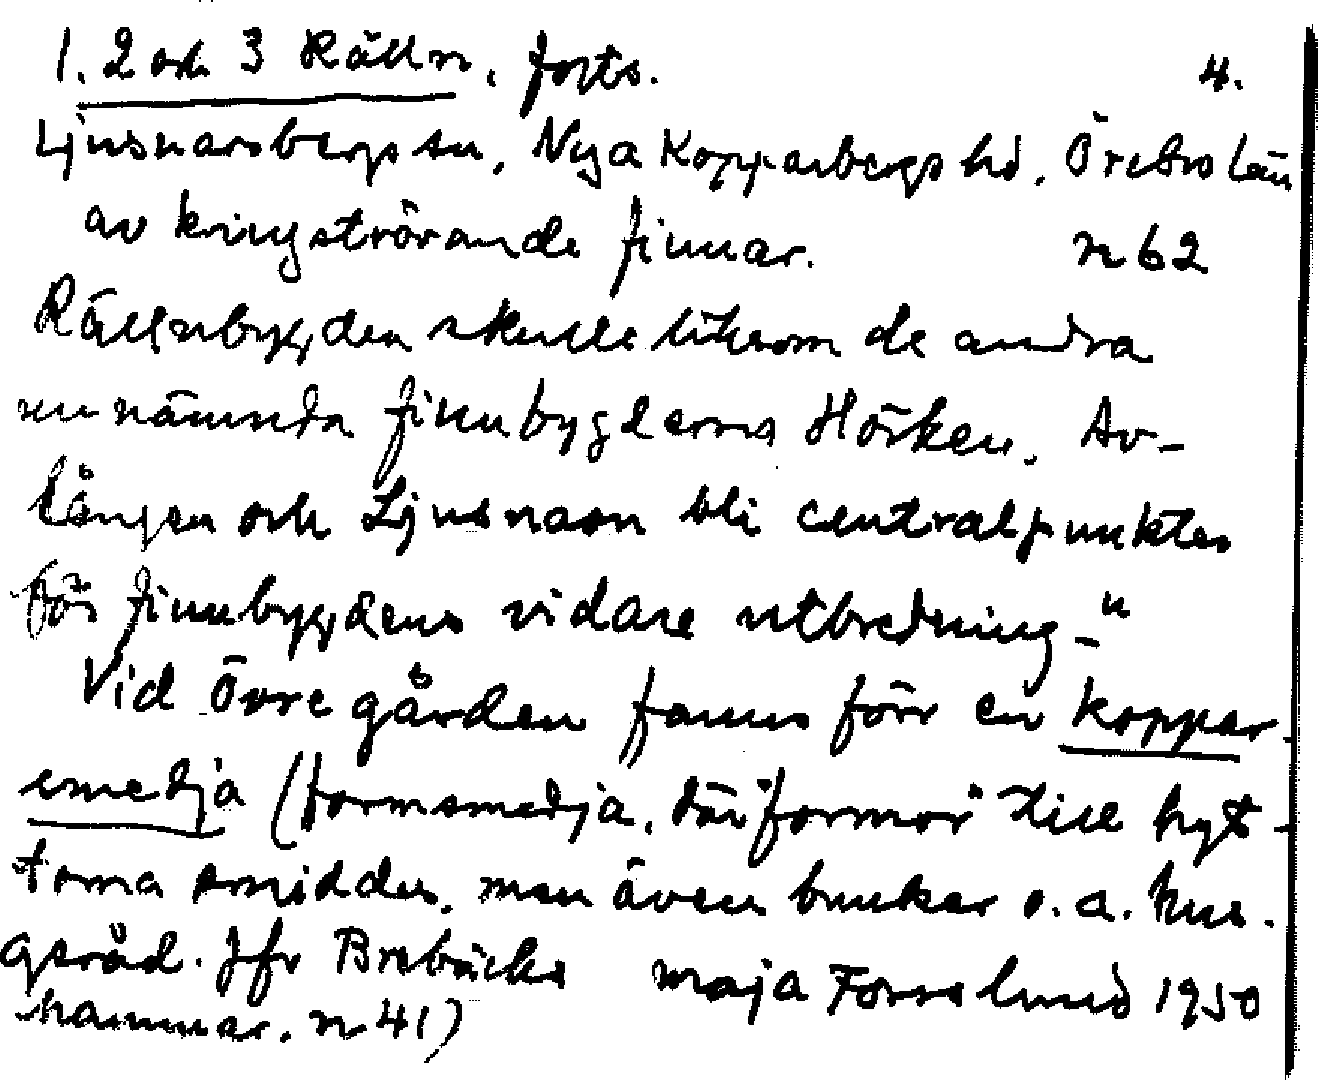 1. 2 och 3 Källn, forts. 4.
Ljusnarsbergs sn, Nya Kopparbergs hd, Örebro län
av kringströvande finnar. n 62
Rällsbygden skulle liksom de andra
nu nämnda finnbygderna Hörken, Av-
lången och Ljusnaren bli centralpunkter
för finnbygdens vidare utbredning-"
Vid Övre gården fanns förr en koppar-
smedja (formsmedja, där "formor" till hyt-
torna smiddes, men även bunkar o. a. hus-
geråd. Jfr Brobäcks maja Forsslund 1950
hammar. n 41)